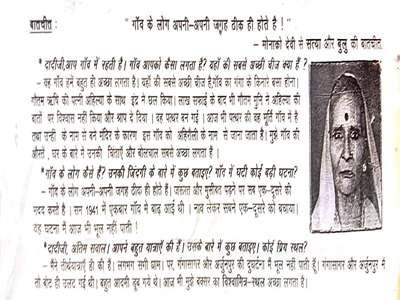 बातचीत :
" गाँव के लोग अपनी-अपनी जगृह ठीक ही होते है ! "
– मोनाको देवी से सत्या और बुलु की बातचीत.
* दादीजी, आप गाँव में रहती है। गाँव आपको कैसा लगता है? वहाँ की सबसे अच्छी चीज क्या हैं ?
– वह गाँव हमें बहुत ही अच्छा लगता है। वहाँ की सबसे अच्छी चीज है, गाँव का गंगा के किनारे बसा होना।
गौतम ऋषि की पत्नी अहिल्या के साथ इंद्र ने छल किया। लाख सफाई के बाद भी गौतम मुनि ने अहिल्या की
बातों पर विश्वास नहीं किया और श्राप दे दिया। वह पत्थर बन गई । आज भी पत्थर की वह मूर्ति गाँव में है
तथा उन्हीं के नाम से बने मंदिर के कारण इस गाँव को अहिरौली के नाम से जाना जाता है। मुझे गाँव की
औरतें, घर के बारे में उनकी चिंताएँ और बोलचाल सबसे अच्छा लगता है ।
* गाँव के लोग कैसे हैं? उनकी जिंदगी के बारे में कुछ बताइए? गाँव में घटी कोई बड़ी घटना?
– गाँव के लोग अपनी-अपनी जगह ठीक ही होते हैं। जरूरत और मुसीबत पड़ने पर सब एक-दूसरे की
मदद करते है । सन 1941 में एकबार गाँव में बाढ़ आई थी । नाव लेकर सबने एक-दूसरे को बचाया।
वह घटना मैं आज भी भूल नहीं पाती !
* दादीजी, अंतिम सवाल। आपने बहुत यात्राएँ की हैं। उसके बारे में कुछ बताइए। कोई प्रिय स्थल?
– मैंने तीर्थयात्राएँ ही की है। लगभग सभी धाम। पर, गंगासागर और अर्जुनपुर की दुर्घटना मैं भूल नहीं पाती हूँ। गंगासागर और अर्जुनपुर में
तो बोट ही उलट गई थी। बहुत आदमी डूब गये थे। आज भी मुझे बक्सर का विश्वामित्र-स्थल अच्छा लगता है।